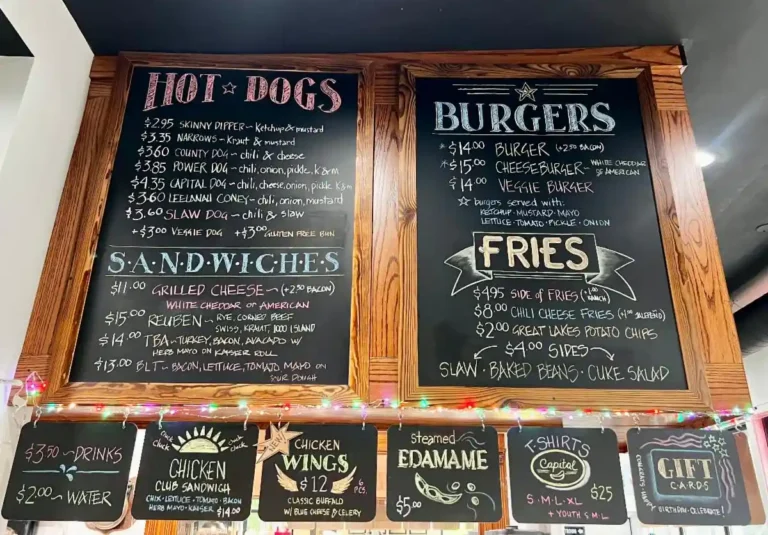 HOT ☆ DOGS
$2.95 SKINNY DIPPER ~ Ketchup & mustard
$3.35 NARROWS ~ Kraut & mustard
$3.60 COUNTY DOG ~ chili & cheese
$3.85 POWER DOG ~ chili, onion, pickle, k&m
$4.35 CAPITAL DOG ~ chili, cheese, onion, pickle, k&m
$3.60 LEELANAU CONEY ~ chili, onion, mustard
$3.60 SLAW DOG ~ chili & slaw
+$3.00 VEGGIE DOG +$3.00 GLUTEN FREE BUN
S·A·N·D·W·I·C·H·E·S
$11.00 GRILLED CHEESE ~ (+2.50 BACON)
WHITE CHEDDAR OR AMERICAN
$15.00 REUBEN ~ RYE, CORNED BEEF
SWISS, KRAUT, 1000 ISLAND
$14.00 TBA ~ TURKEY, BACON, AVACADO W/
HERB MAYO ON KAISER ROLL
$13.00 BLT ~ BACON, LETTUCE, TOMATO, MAYO ON
SOUR DOUGH
BURGERS
*$14.00 BURGER (+2.50 BACON)
*$15.00 CHEESEBURGER ~ WHITE CHEDDAR
OR AMERICAN
$14.00 VEGGIE BURGER
☆ burgers served with:
KETCHUP·MUSTARD·MAYO
LETTUCE·TOMATO·PICKLE·ONION
FRIES
$4.95 SIDE OF FRIES (+1.00
RANCH)
$8.00 CHILI CHEESE FRIES (+1.00 JALEPEÑO)
$2.00 GREAT LAKES POTATO CHIPS
$4.00 SIDES
SLAW · BAKED BEANS · CUKE SALAD
$3.50 ~ DRINKS
$2.00 ~ WATER
cluck cluck
CHICKEN
CLUB SANDWICH
CHIX·LETTUCE·TOMATO·BACON
HERB MAYO·KAISER $14.00
NEW
CHICKEN
WINGS
$12 6 PCS.
CLASSIC BUFFALO
W/ BLUE CHEESE & CELERY
steamed
EDAMAME
$5.00
T-SHIRTS
Capital
S·M·L·XL $25
+ YOUTH S M L
GIFT
C·A·R·D·S
BIRTHDAY·CELEBRATE!